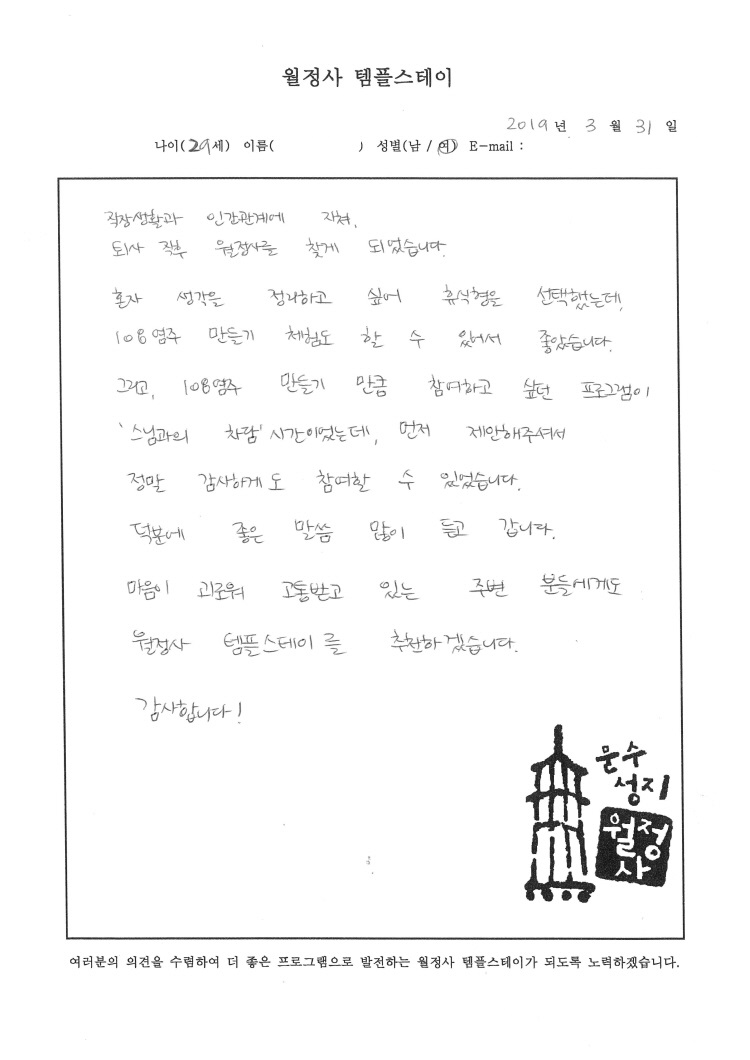 월정사 템플스테이
2019 년 3 월 31 일
나이(29세) 이름( ) 성별(남 / 여) E-mail :
직장생활과 인간관계에 지쳐,
퇴사 직후 월정사를 찾게 되었습니다.
혼자 생각을 정리하고 싶어 휴식형을 선택했는데,
108염주 만들기 체험도 할 수 있어서 좋았습니다.
그리고, 108염주 만들기 만큼 참여하고 싶던 프로그램이
'스님과의 차담' 시간이었는데, 먼저 제안해주셔서
정말 감사하게도 참여할 수 있었습니다.
덕분에 좋은 말씀 많이 듣고 갑니다.
마음이 괴로워 고통받고 있는 주변 분들에게도
월정사 템플스테이를 추천하겠습니다.
감사합니다!
문수
성지
월정
사
여러분의 의견을 수렴하여 더 좋은 프로그램으로 발전하는 월정사 템플스테이가 되도록 노력하겠습니다.